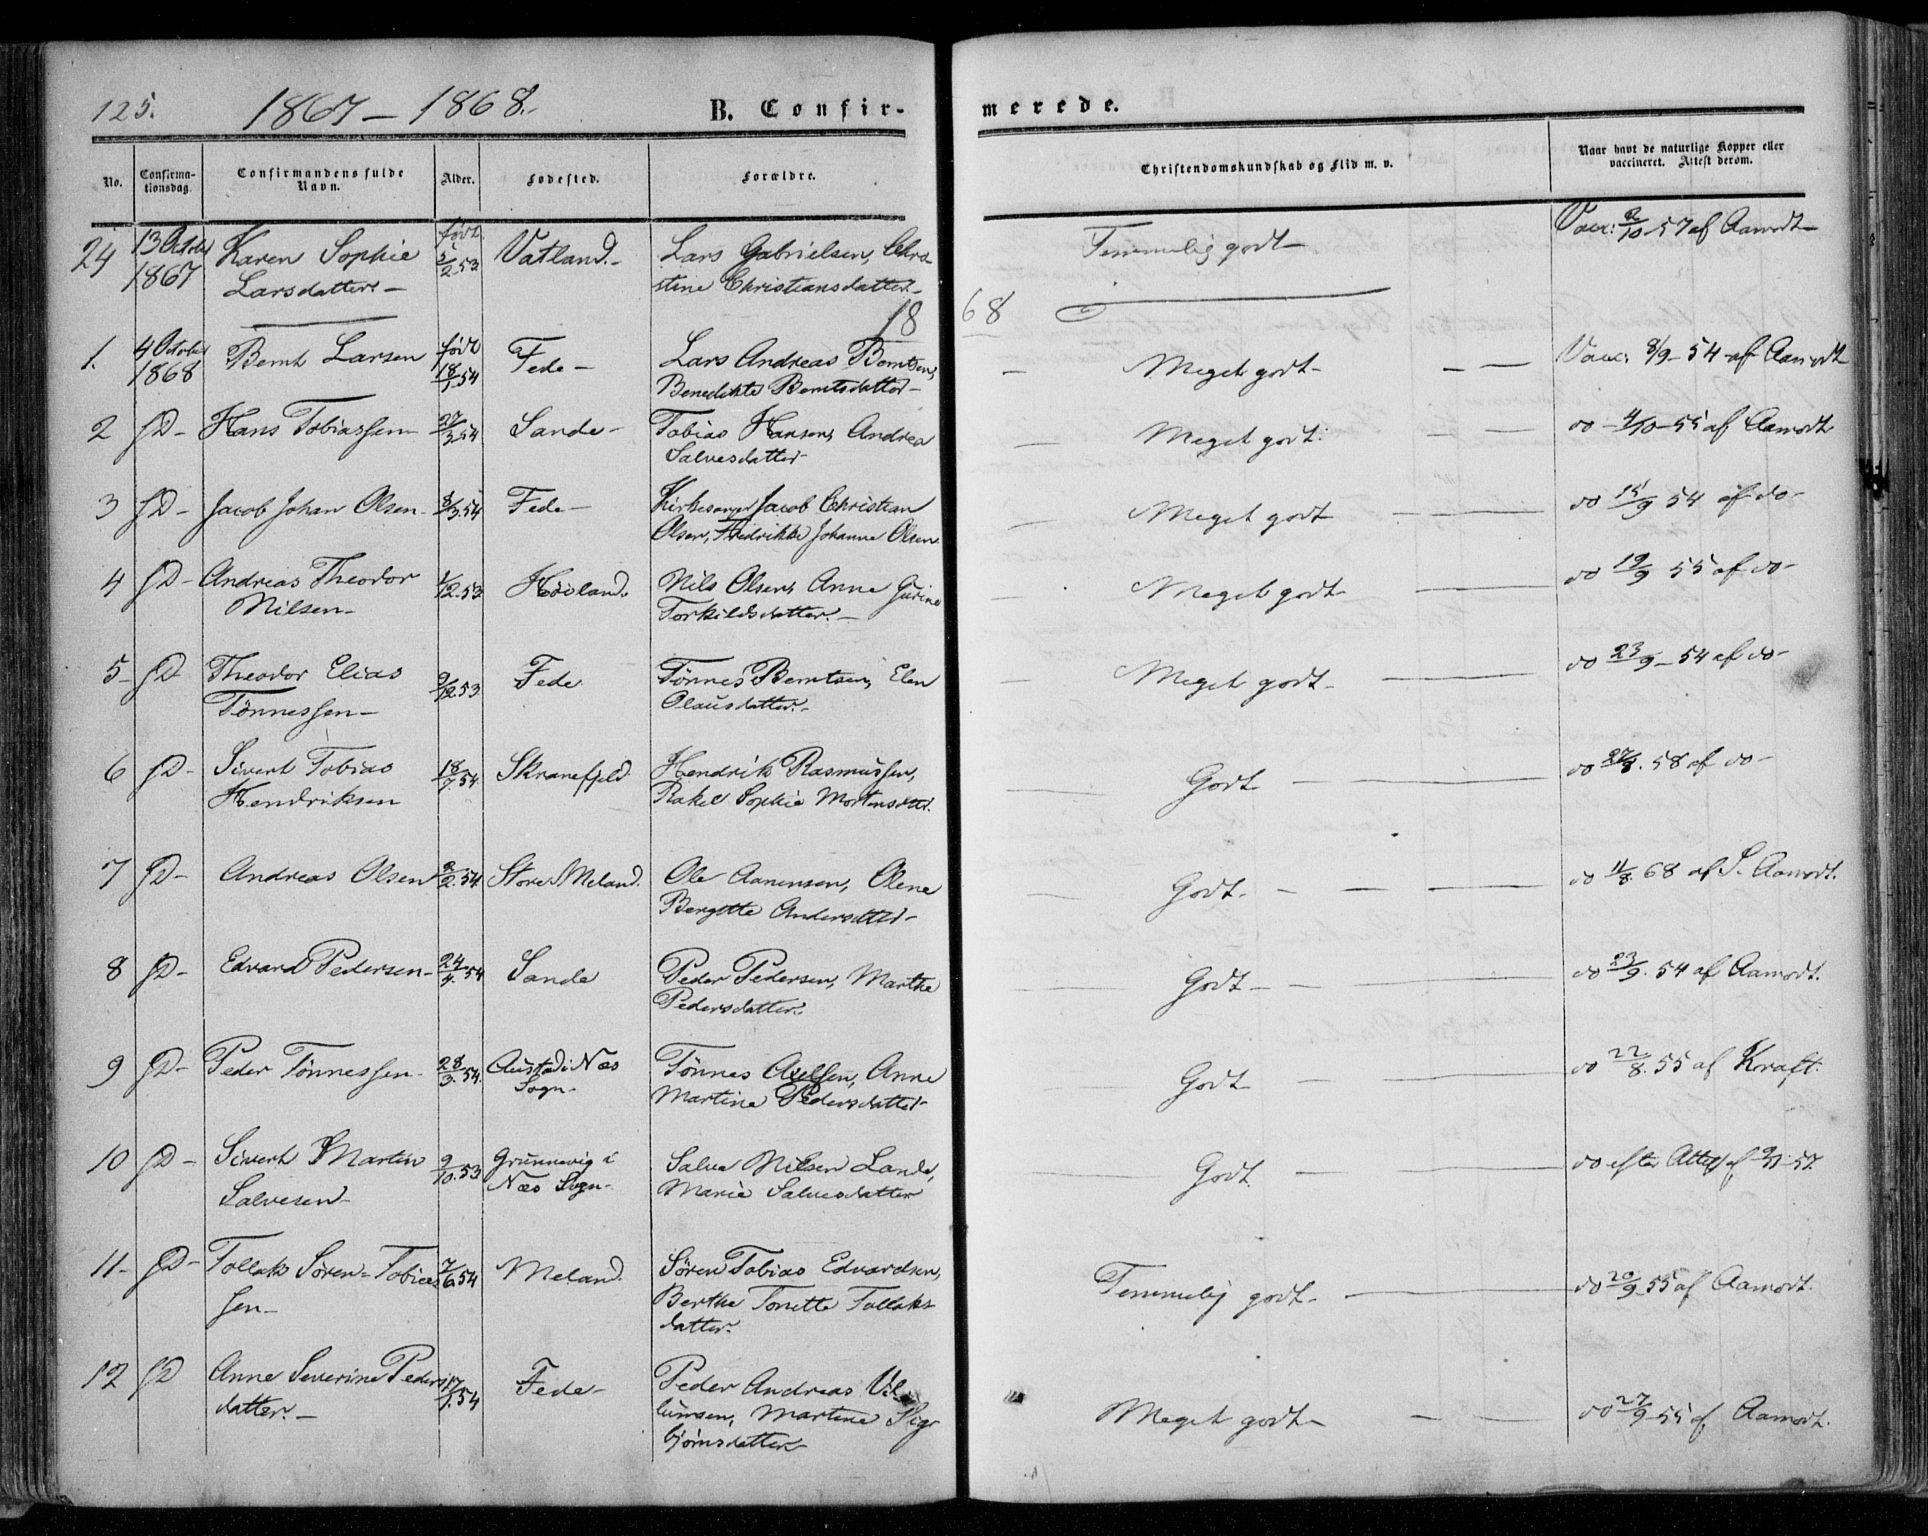 125.
1867 – 1868.
B. Confir-
merede.
No.
Confirma-
tionsdag.
Confirmandens fulde
Navn.
Alder.
Fødested.
Forældre.
Christendomskundskab og Flid m. v.
Naar havt de naturlige Kopper eller
vaccineret. Attest derom.
24 13 October 1867 Karen Sophie født 5/2 53 Vatland. – Lars Gabrielsen, Chri- Temmelig godt – Vacc: 2/10 57 af Aamodt –
Larsdatter. – stine Christiansdatter –
1868
1. 4 October 1868 Bernt Larsen født 18/1 54 Fede – Lars Andreas Berntsen, – Meget godt – – – Vacc: 8/9 – 54 af Aamodt
Benedikte Berntsdatter –
2 D – Hans Tobiassen 27/3 54 Sande – Tobias Hansen, Andrea – Meget godt. – – do – 4/10 – 55 af Aamodt
Salvesdatter
3 D – Jacob Johan Olsen – 8/3 54 Fede – Kirkesanger Jacob Christian – Meget godt – – do 15/9 54 af do –
Olsen, Fredrikke Johanne Olsen
4 D – Andreas Theodor 1/12 53 Høiland. Nils Olsen, Anne Gurine Meget godt – do 19/9 55 af do –
Nilsen – Torkildsdatter. –
5 – D – Theodor Elias 9/12 53 Fede Tønnes Berntsen, Elen – Meget godt. – do 23/9 – 54 af do –
Tønnessen – Olausdatter. –
6 D – Sivert Tobias 18/7 54 Skranefjeld. Hendrik Rasmussen, – Godt – do 27/8. 58 af do –
Hendriksen Rakel Sophie Mortensdtr.
7 D – Andreas Olsen 2/2. 54 Store Meland. Ole Aanensen, Olene – Godt. – – – do 11/8. 68 af S. Aamodt.
Bergitte Andersdatter –
8 D – Edvard Pedersen – 24/4. 54 Sande Peder Pedersen, Marthe – Godt – – do 23/9. 54 af Aamodt.
Pedersdatter.
9 D – Peder Tønnessen – 28/3. 54. Austad i Næs Tønnes Axelsen, Anne – Godt – do 22/8. 55 af Kraft.
Sogn – Martine Pedersdatter –
10 D – Sivert Martin 9/10. 53 Grunnevig i Salve Nilsen Lande, – Godt. – do efter Attest af 9/11 57.
Salvesen – Næs Sogn – Marie Salvesdatter
11 – D – Tollak Søren Tobias 7/6 54 Meland. Søren Tobias Edvardsen, Temmelig godt – – do 20/9 55 af Aamodt.
sen – Berthe Tonette Tollaks
datter.
12 D Anne Severine Peders 17/1. 54 Fede – Peder Andreas Meget godt – – – do 27/9 55 af Aamodt.
datter. – Martine Sig
bjørnsdatter –